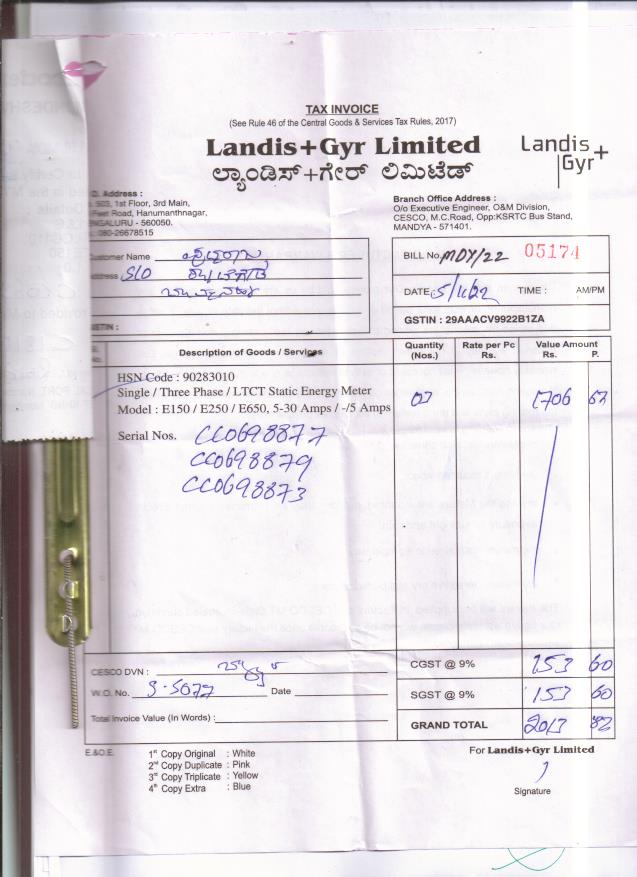 TAX INVOICE
(See Rule 46 of the Central Goods & Services Tax Rules, 2017)
Landis+Gyr Limited
Landis+Gyr
ಲ್ಯಾಂಡಿಸ್+ಗೇರ್ ಲಿಮಿಟೆಡ್
Address :
503, 1st Floor, 3rd Main,
Feet Road, Hanumanthnagar,
560050.
080-26678515
Branch Office Address :
O/o Executive Engineer, O&M Division,
CESCO, M.C.Road, Opp:KSRTC Bus Stand,
MANDYA - 571401.
Customer Name
S/O
BILL No. MDY/22 05174
DATE 5/11/22 TIME : AM/PM
GSTIN : 29AAACV9922B1ZA
No. Description of Goods / Services Quantity (Nos.) Rate per Pc Rs. Value Amount Rs. P.
HSN Code : 90283010
Single / Three Phase / LTCT Static Energy Meter
Model : E150 / E250 / E650, 5-30 Amps / -/5 Amps
1706
Serial Nos. CC0698877
CC0698879
CC0698873
CESCO DVN :
CGST @ 9% 153 60
W.O. No. Date
SGST @ 9% 153 60
Total Invoice Value (In Words) :
GRAND TOTAL 2013
E.&O.E.
1st Copy Original : White
2nd Copy Duplicate : Pink
3rd Copy Triplicate : Yellow
4th Copy Extra : Blue
For Landis+Gyr Limited
Signature